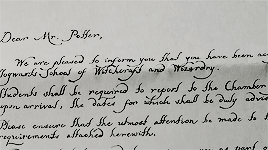 Dear Mr. Potter,
We are pleased to inform you that you have been acc
Hogwarts School of Witchcraft and Wizardry.
Students shall be required to report to the Chamber
upon arrival, the dates for which shall be duly advise
Please ensure that the utmost attention be made to t
requirements attached herewith.